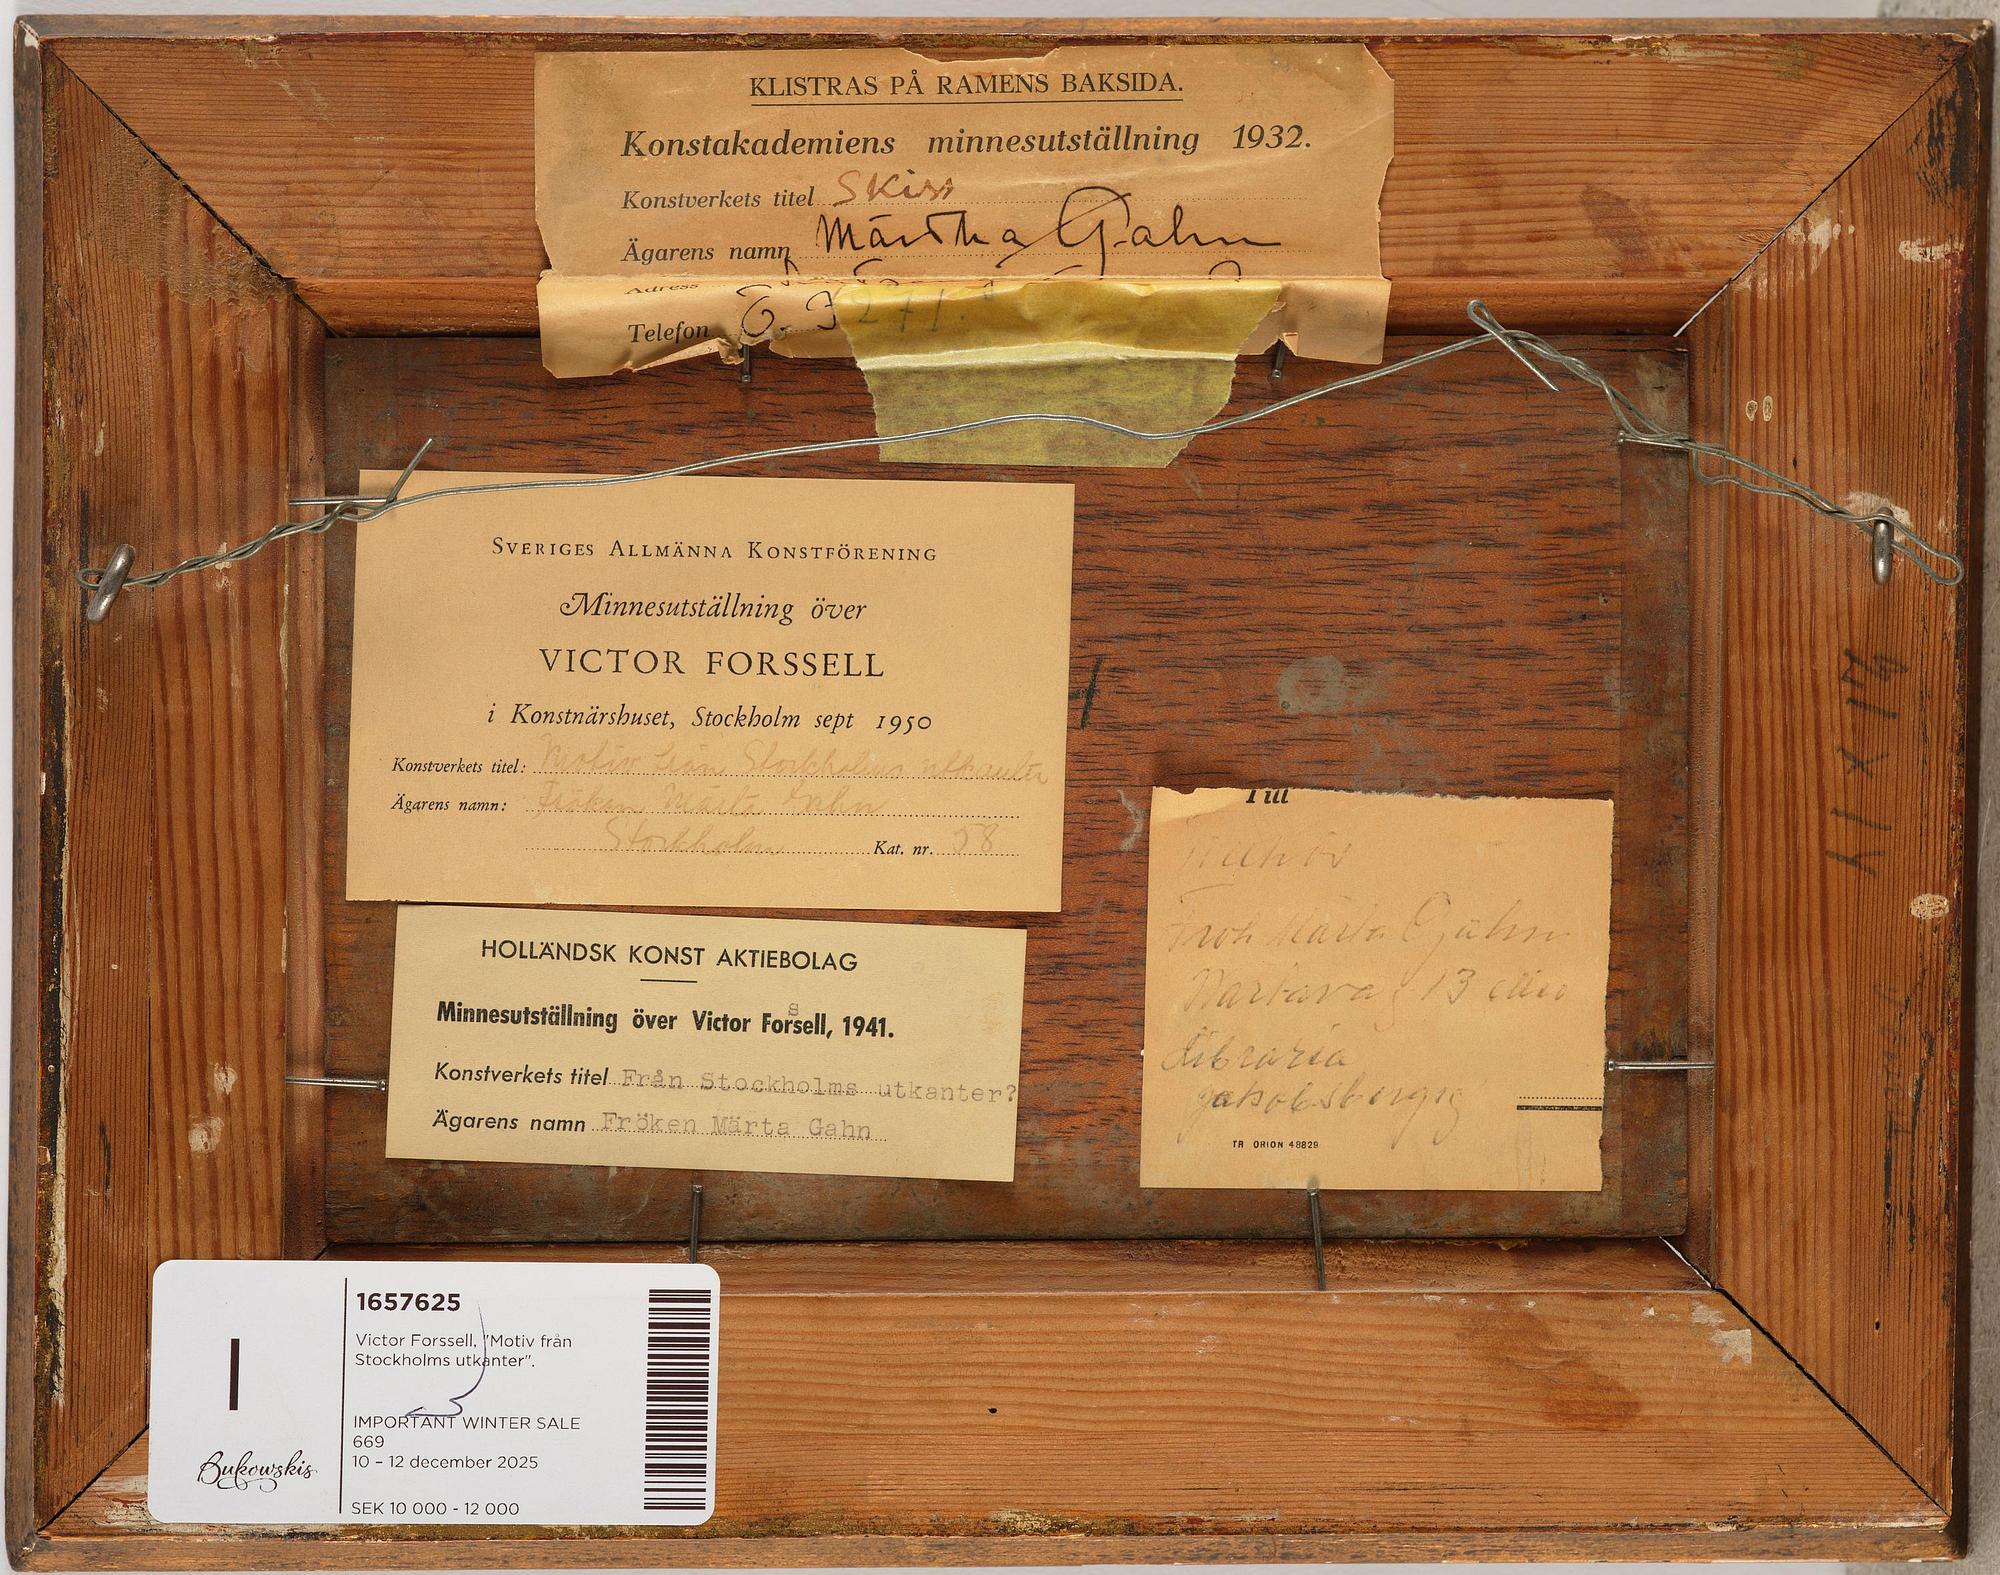 KLISTRAS PÅ RAMENS BAKSIDA.
Konstakademiens minnesutställning 1932.
Konstverkets titel Skiss
Ägarens namn Märtha Gahn
Adress
Telefon
SVERIGES ALLMÄNNA KONSTFÖRENING
Minnesutställning över
VICTOR FORSSELL
i Konstnärshuset, Stockholm sept 1950
Konstverkets titel: Motiv från Stockholms utkanter
Ägarens namn: Fröken Märta Gahn
Stockholm Kat. nr. 58
HOLLÄNDSK KONST AKTIEBOLAG
Minnesutställning över Victor Forssell, 1941.
Konstverkets titel Från Stockholms utkanter?
Ägarens namn Fröken Märta Gahn
Till
Tillhör
Märta Gahn
13
Libraria
Jakobsbergsg
TR ORION 48829
1657625
Victor Forssell, "Motiv från
Stockholms utkanter".
IMPORTANT WINTER SALE
669
10 – 12 december 2025
SEK 10 000 - 12 000
I
Bukowskis